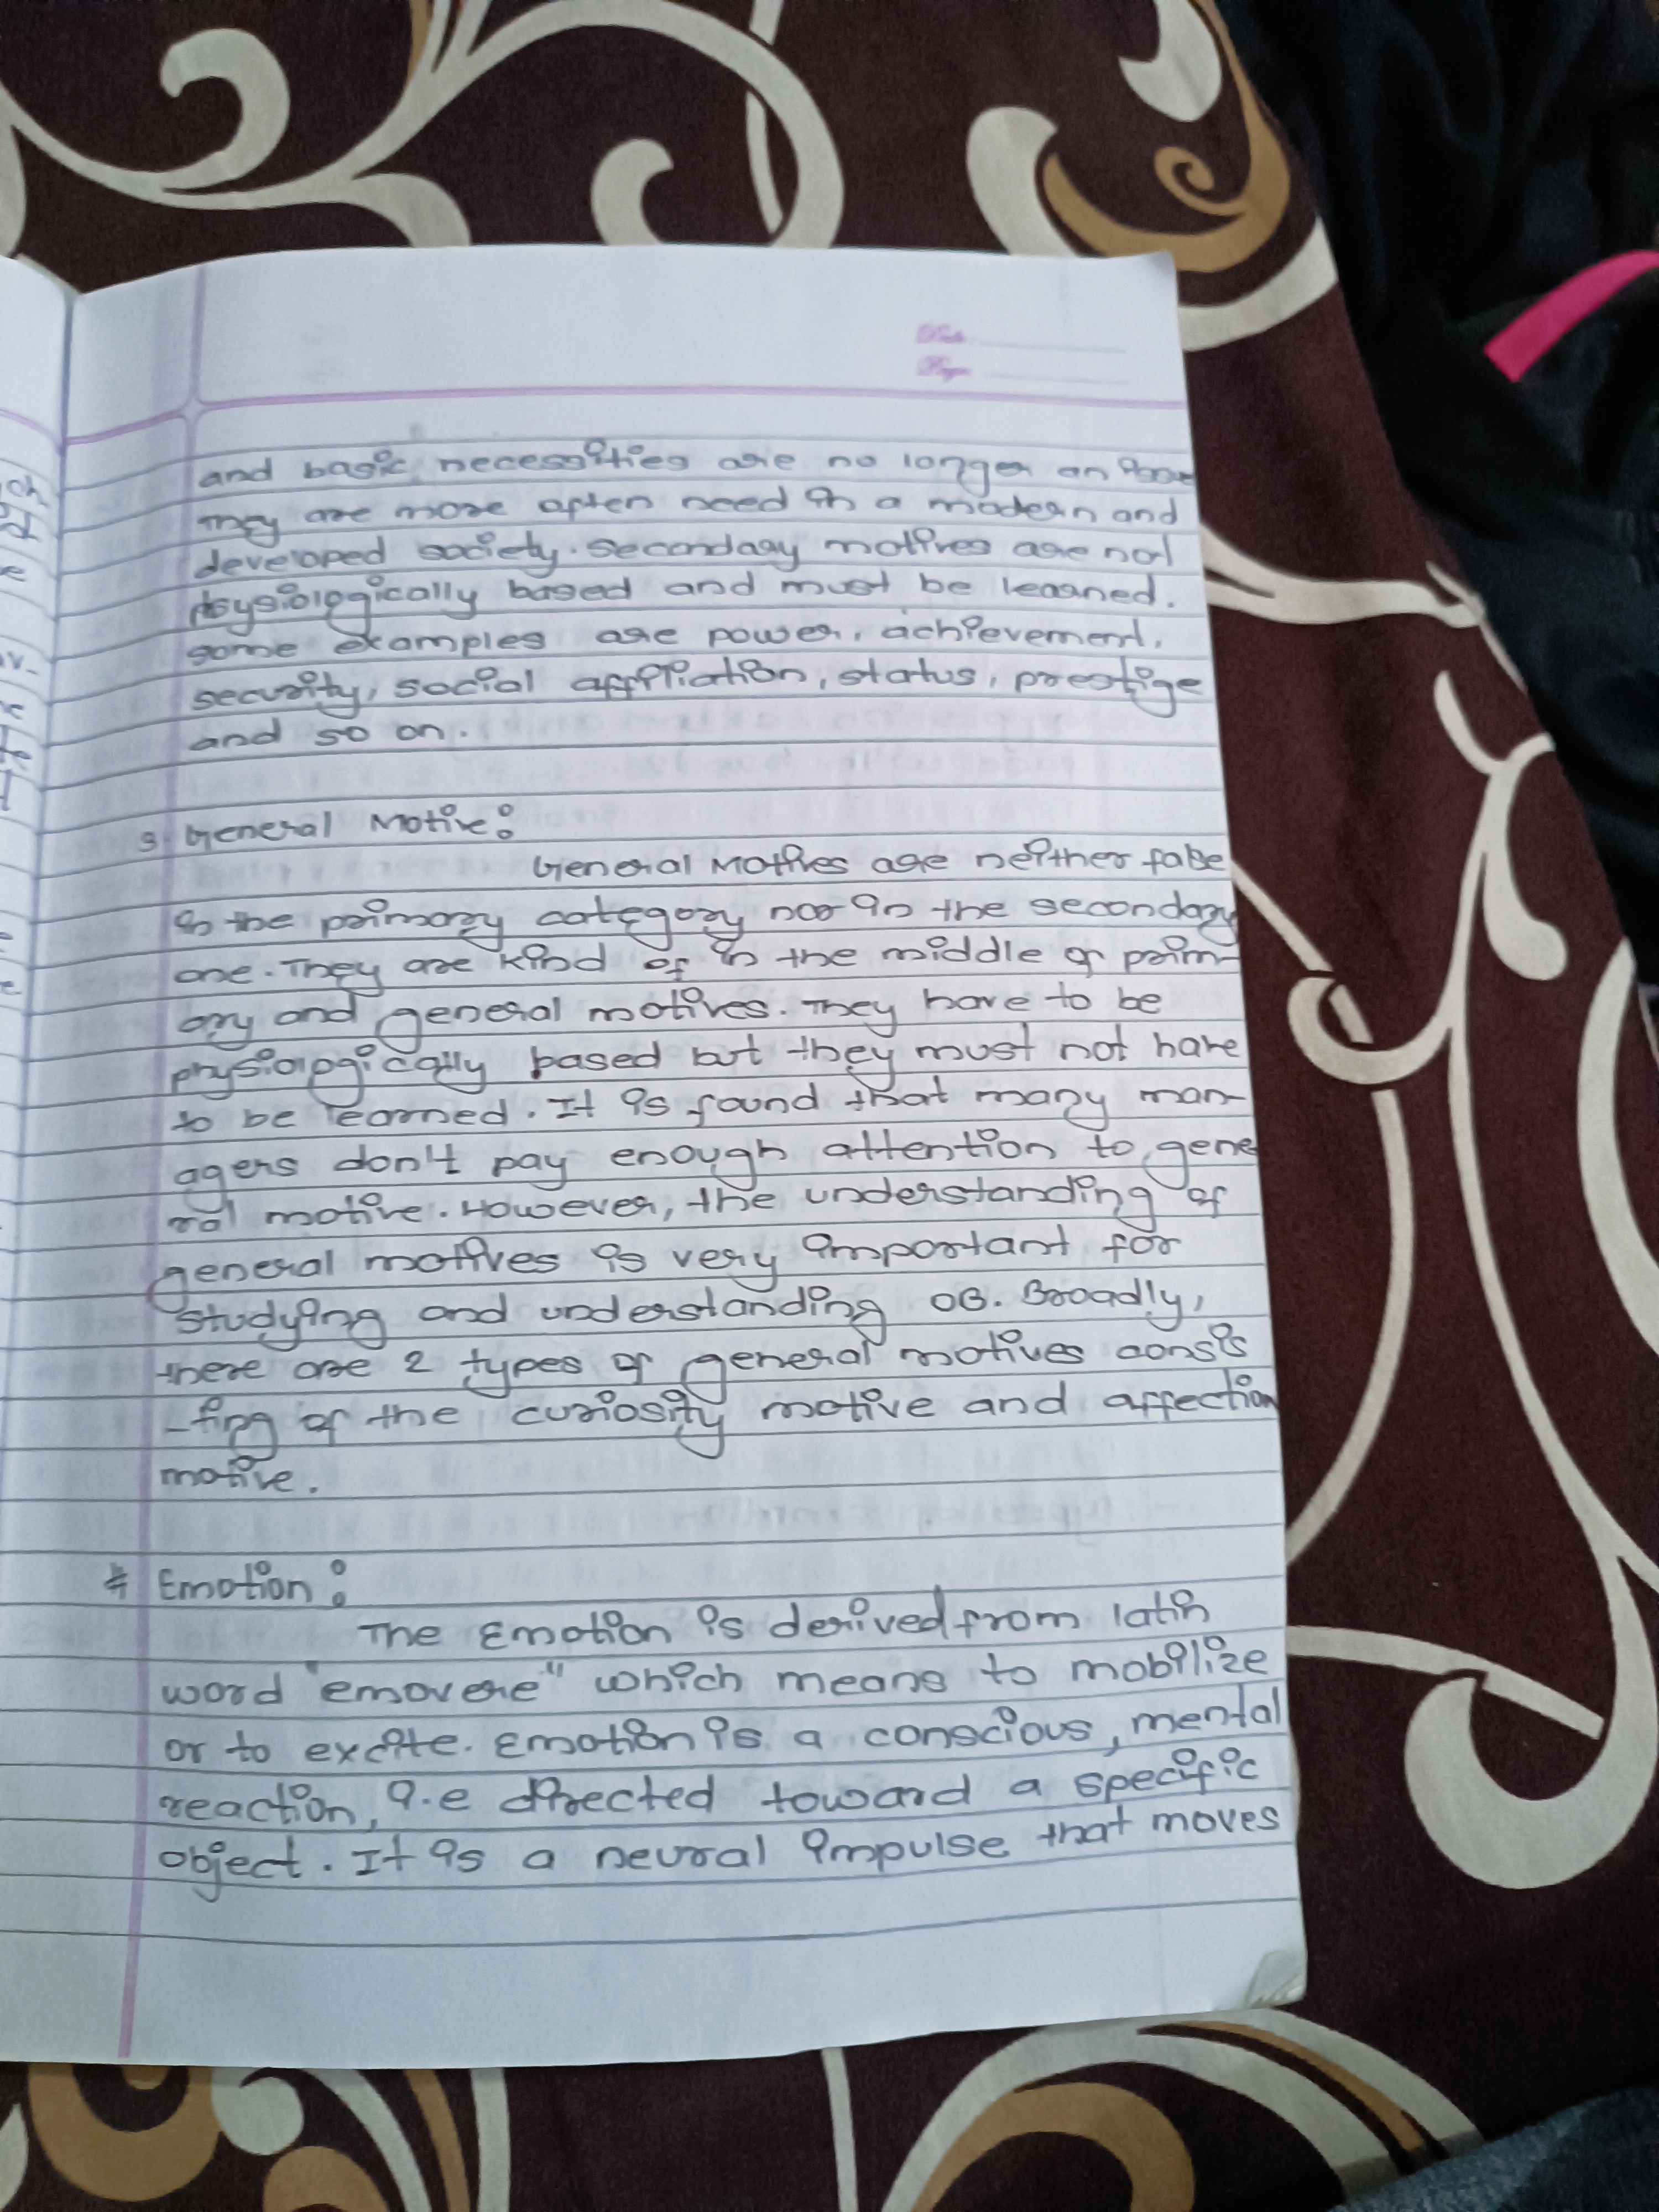 Date
Page
and basic necessities are no longer an issue
They are more often need in a modern and
developed society. Secondary motives are not
psysiologically based and must be learned.
some examples are power, achievement,
security, social affiliation, status, prestige
and so on.
3. General Motive:
General Motives are neither false
in the primary category nor in the secondary
one. They are kind of in the middle of prim-
ary and general motives. They have to be
physiologically based but they must not have
to be learned. It is found that many man-
agers don't pay enough attention to gene
ral motive. However, the understanding of
general motives is very important for
studying and understanding OB. Broadly,
there are 2 types of general motives consis
-ting of the curiosity motive and affection
motive.
# Emotion:
The Emotion is derived from latin
word "emovere" which means to mobilize
or to excite. Emotion is a conscious, mental
reaction, i.e directed toward a specific
object. It is a neural impulse that moves